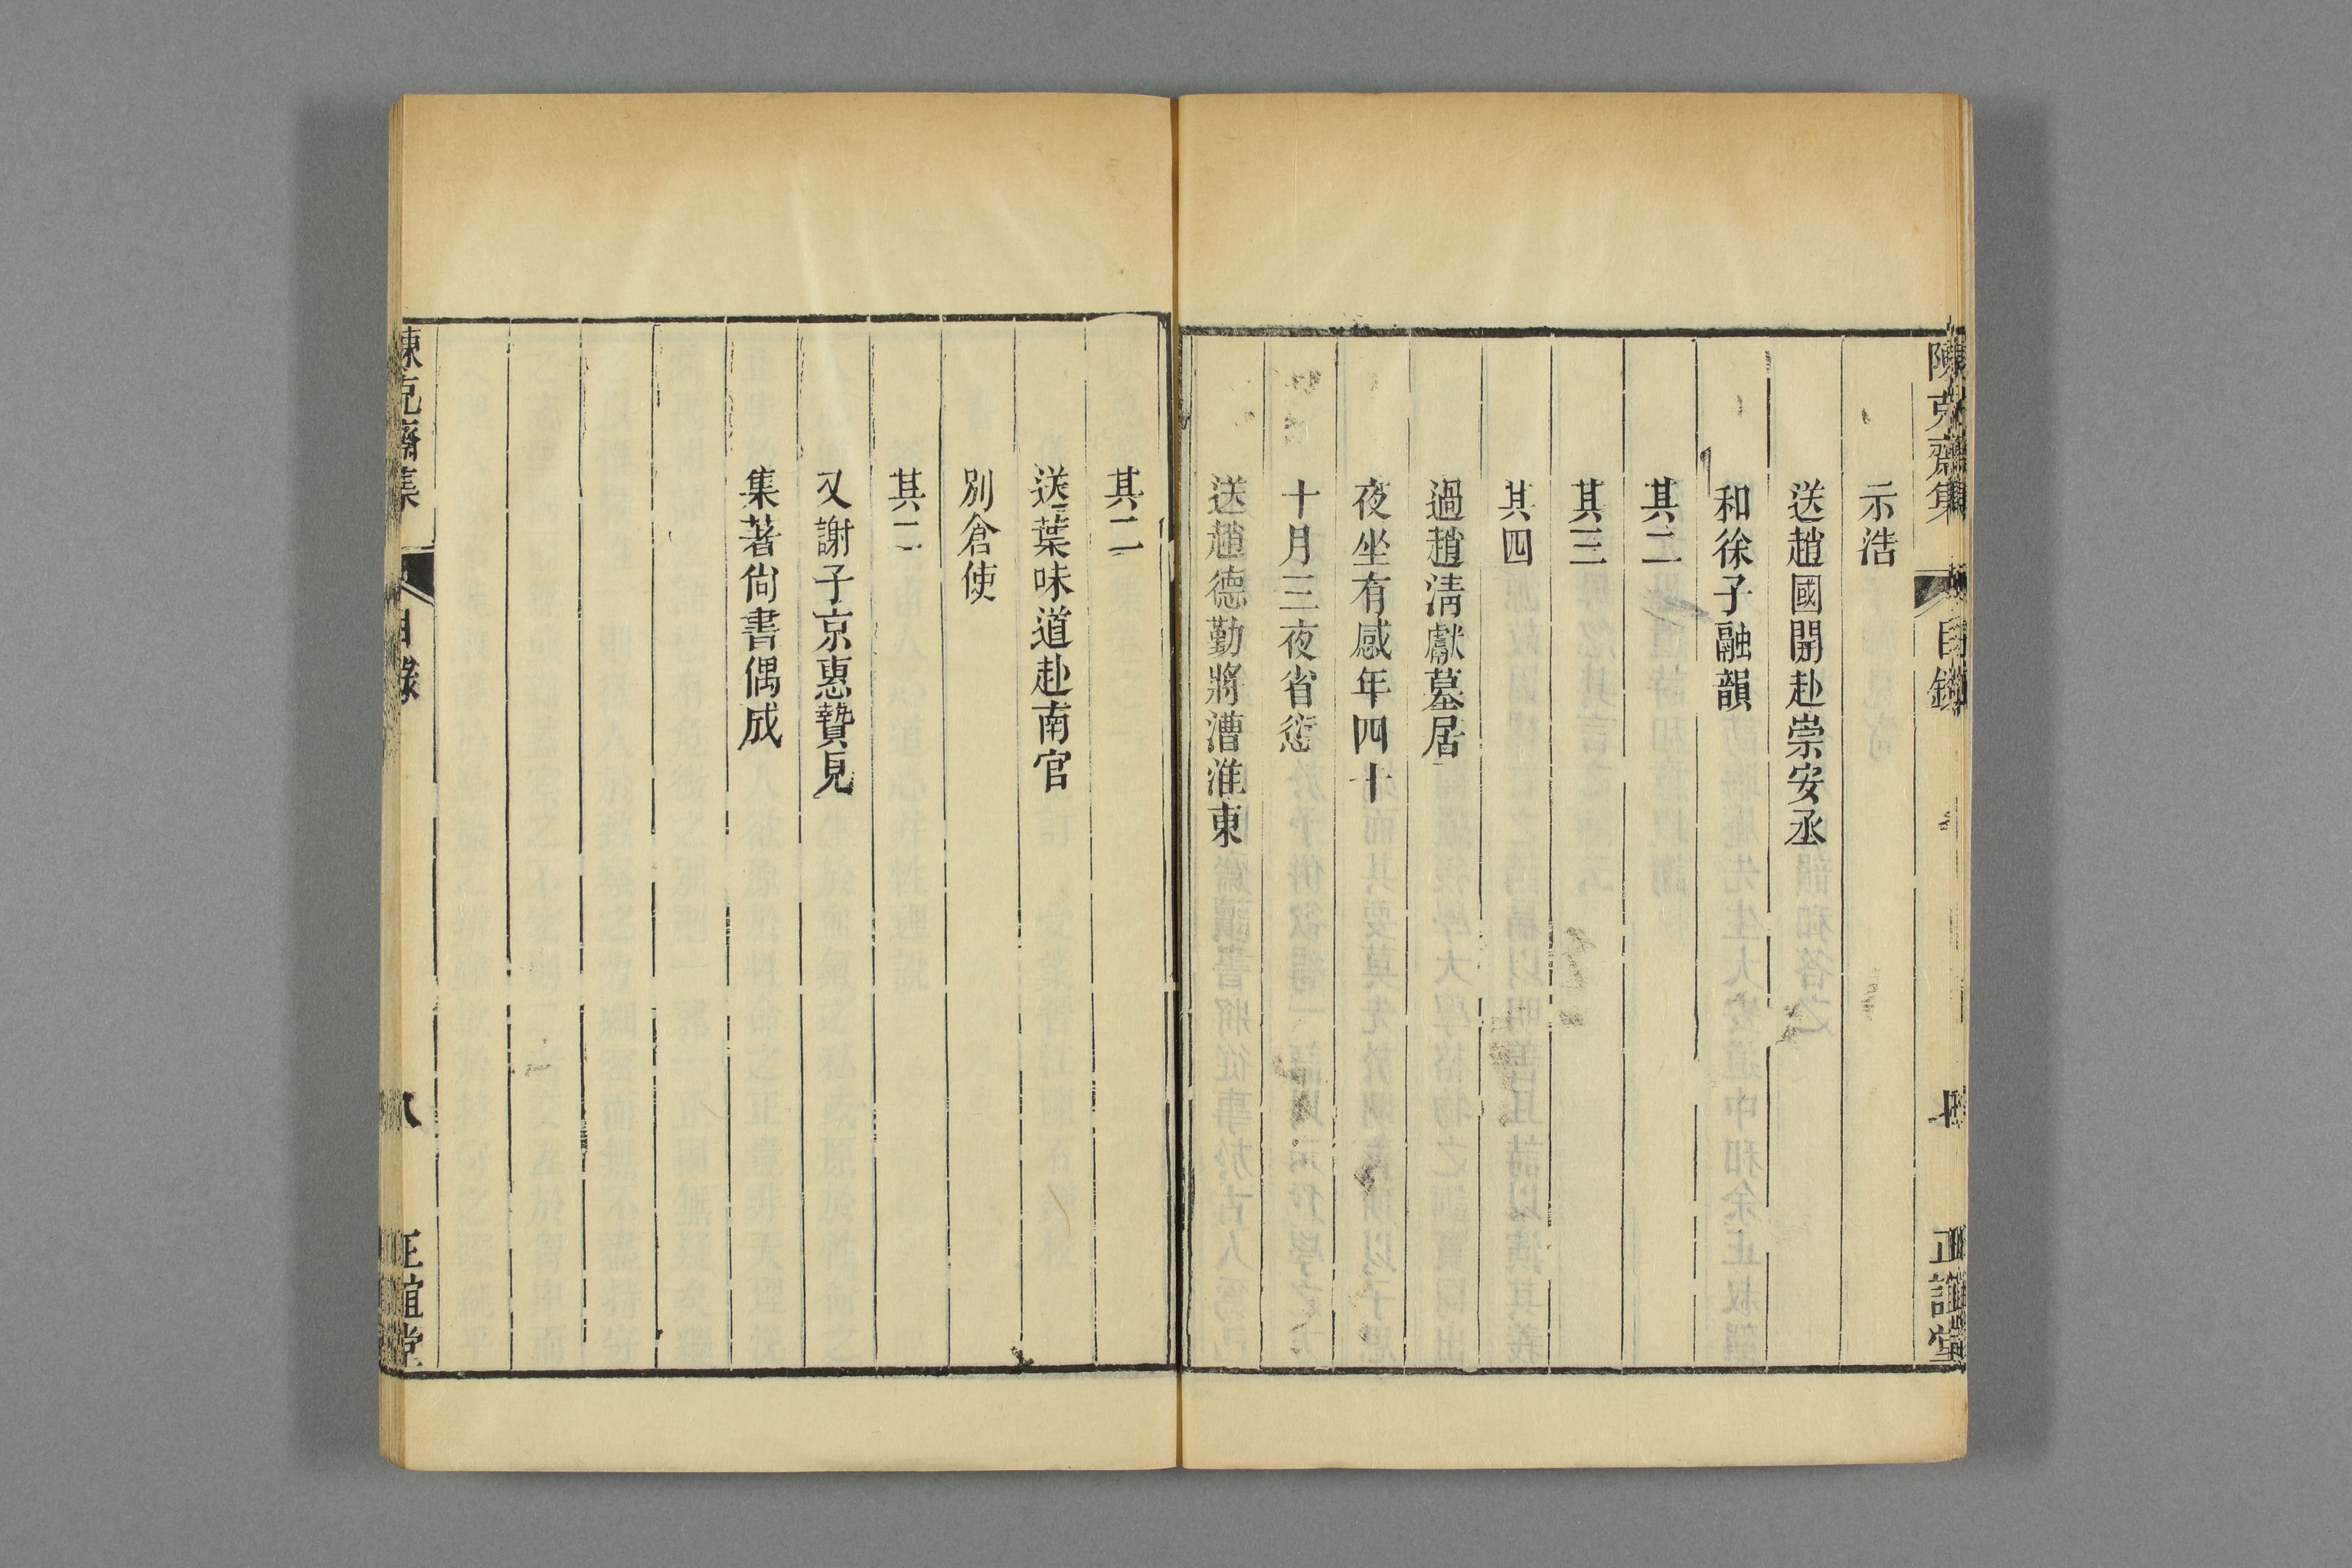 陳克齋集
目錄
正誼堂
示浩
送趙國開赴崇安丞
和徐子融韻
其二
其三
其四
過趙清獻墓居
夜坐有感年四十
十月三夜省愆
送趙德勤將漕淮東
其二
送葉味道赴南官
別倉使
其二
又謝子京惠贄見
集著尙書偶成
陳克齋集
目錄
八
正誼堂